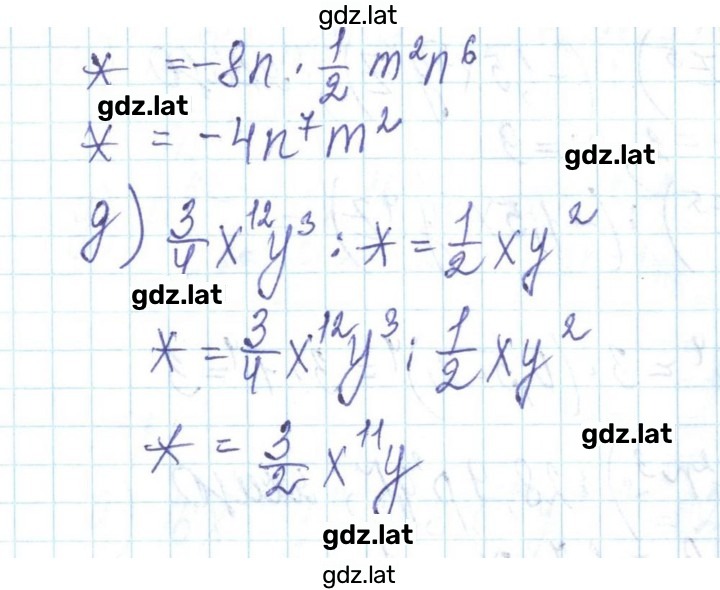 gdz.lat
* = -8n · 1/2 m²n⁶
gdz.lat
* = -4n⁷m²
gdz.lat
д) 3/4 x¹²y³ : * = 1/2 xy²
gdz.lat
* = 3/4 x¹²y³ : 1/2 xy²
gdz.lat
* = 3/2 x¹¹y
gdz.lat
gdz.lat